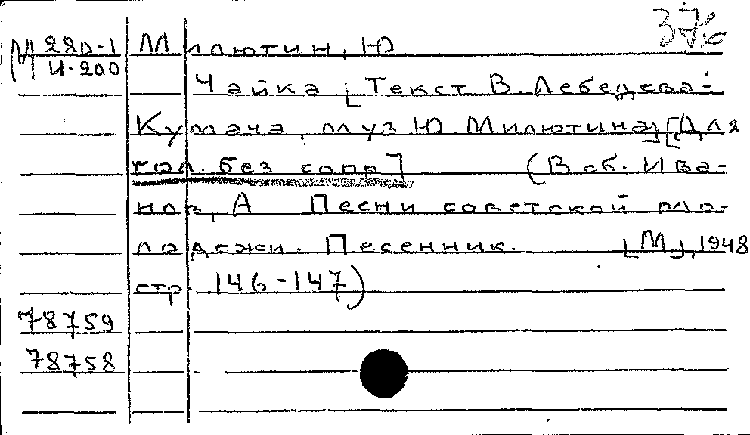 376
М 220-1 Милютин, Ю
И-200
Чайка [Текст В. Лебедева-
Кумача, муз Ю Милютина] [Для
гол. без сопр] (В сб. Ива-
нов, А Песни советской мо-
лодежи. Песенник. [М], 1948
стр. 146-147)
78759
78758